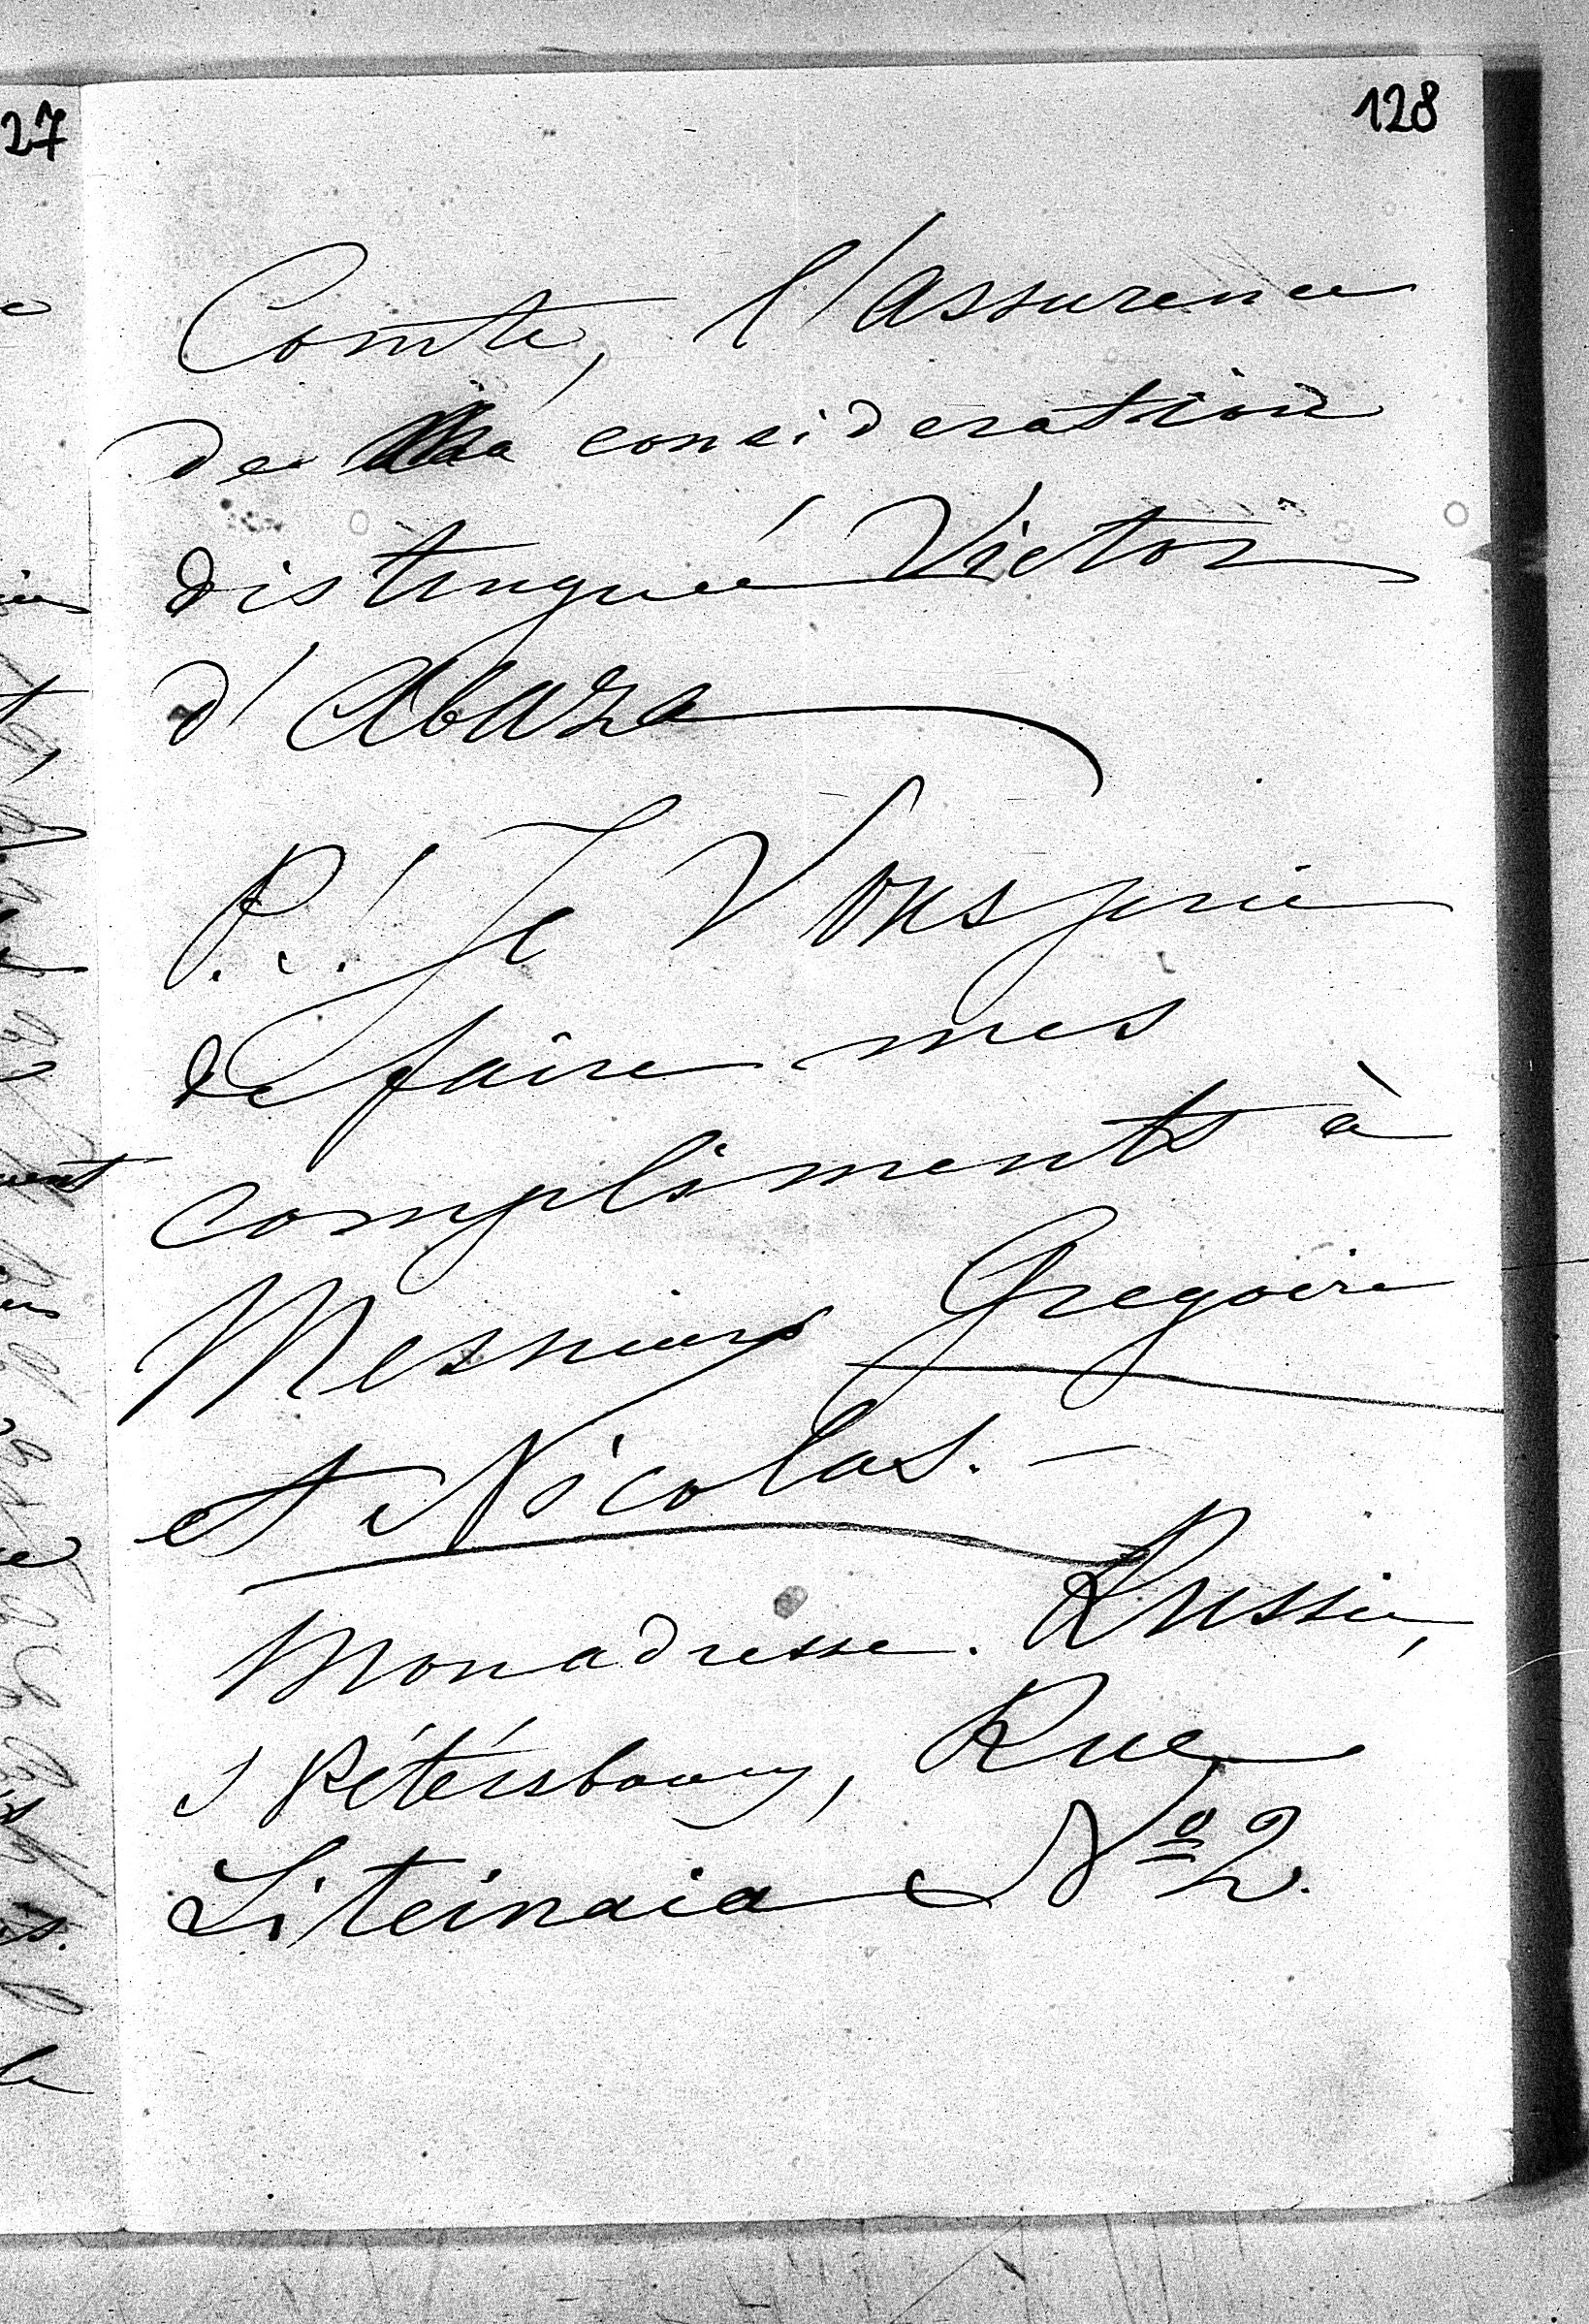 128
Comte, l'assurence
de Ma consideration
distingué Victor
d'Abaza
P.S. Je Vous prie
de faire mes
compliments à
Messieurs Gregoire
et Nicolas. —
Mon adresse. Russie,
S Pétérsbourg, Rue
Liteinaia № 2.
27